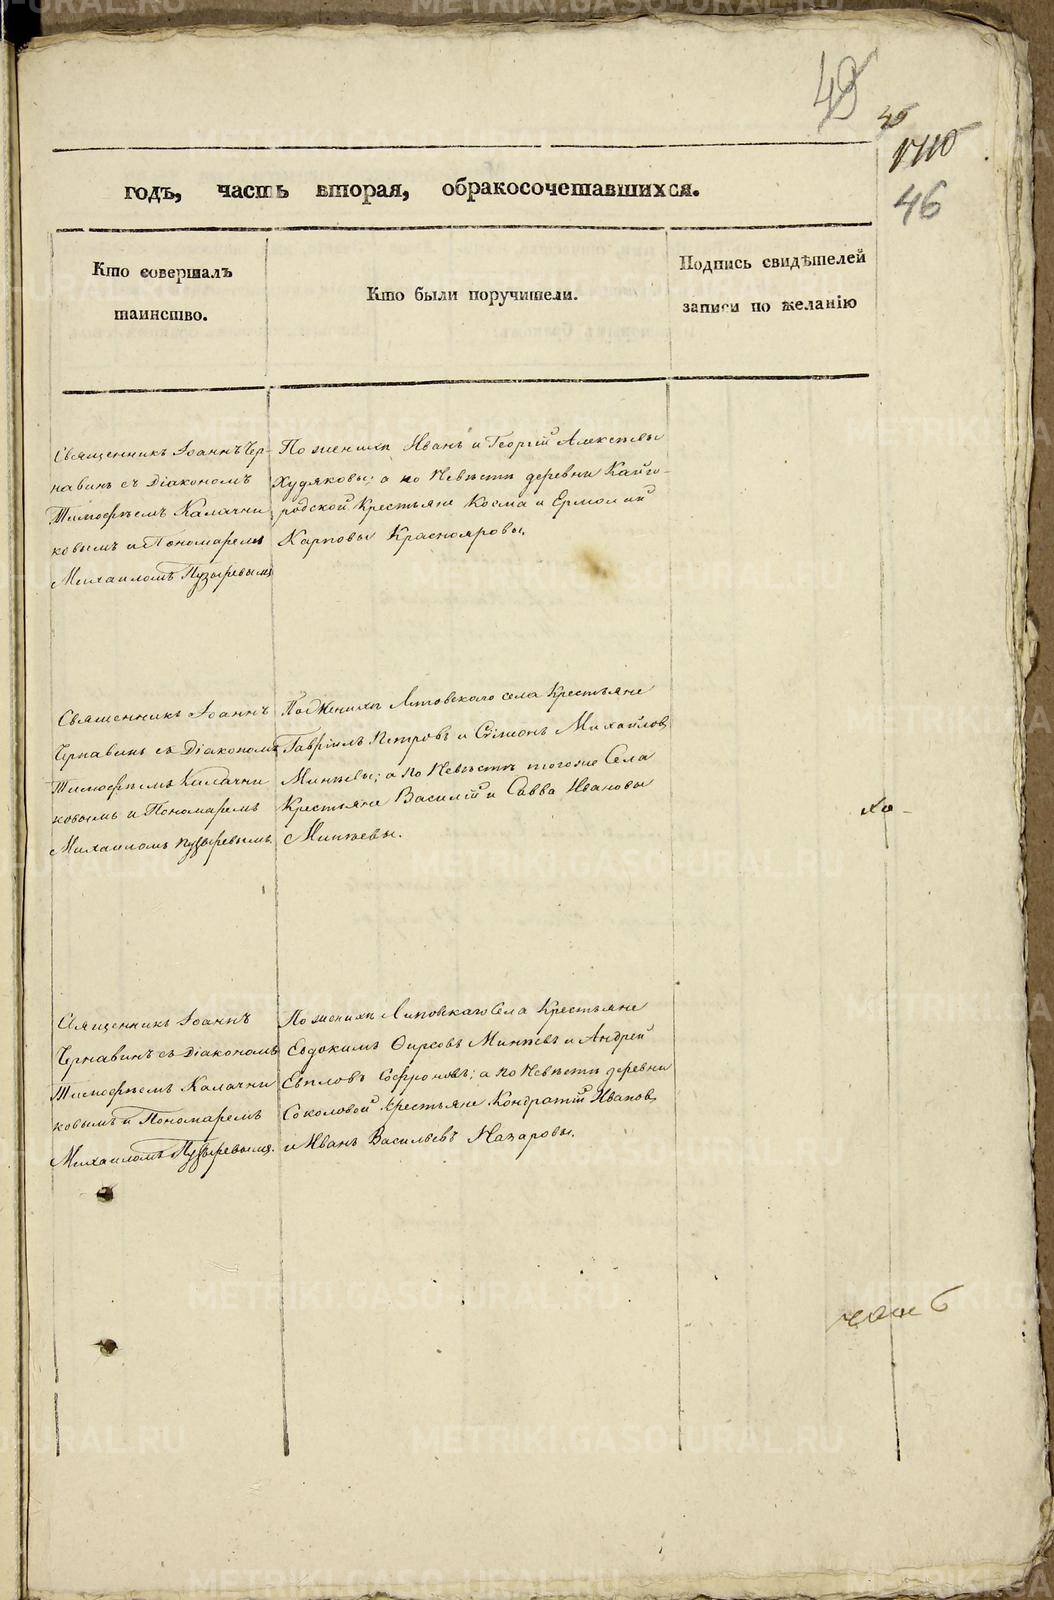 45
1110
46
годъ, часть вторая, обракосочетавшихся.
Кто совершалъ
таинство.
Кто были поручители.
Подпись свидѣтелей
записи по желанію
Священникъ Іоаннъ Чер-
навинъ съ Діакономъ
Тимофѣемъ Калачни
ковымъ и Пономаремъ
Михаиломъ Пузыревымъ
По женихѣ Иванъ и Георгій Алексѣевы
Худяковы; а по Невѣстѣ деревни Кайго-
родской Крестьяне Косма и Ермолай
Карповы Краснояровы.
Священникъ Іоаннъ
Чернавинъ съ Діакономъ
Тимофѣемъ Калачни
ковымъ и Пономаремъ
Михаиломъ Пузыревымъ
По Женихѣ Липовскаго села Крестьяне
Гавріилъ Петровъ и Симеонъ Михайловъ
Минѣевы; а по Невѣстѣ тогоже Села
Крестьяне Василій и Савва Ивановы
Минѣевы.
Священникъ Іоаннъ
Чернавинъ съ Діакономъ
Тимофѣемъ Калачни
ковымъ и Пономаремъ
Михаиломъ Пузыревымъ.
По женихѣ Липовскаго Села Крестьяне
Евдокимъ Фирсовъ Минѣевъ и Андрей
Евпловъ Софроновъ; а по Невѣстѣ деревни
Соколовой Крестьяне Кондратій Ивановъ
и Иванъ Васильевъ Назаровы.
METRIKI.GASO-URAL.RU